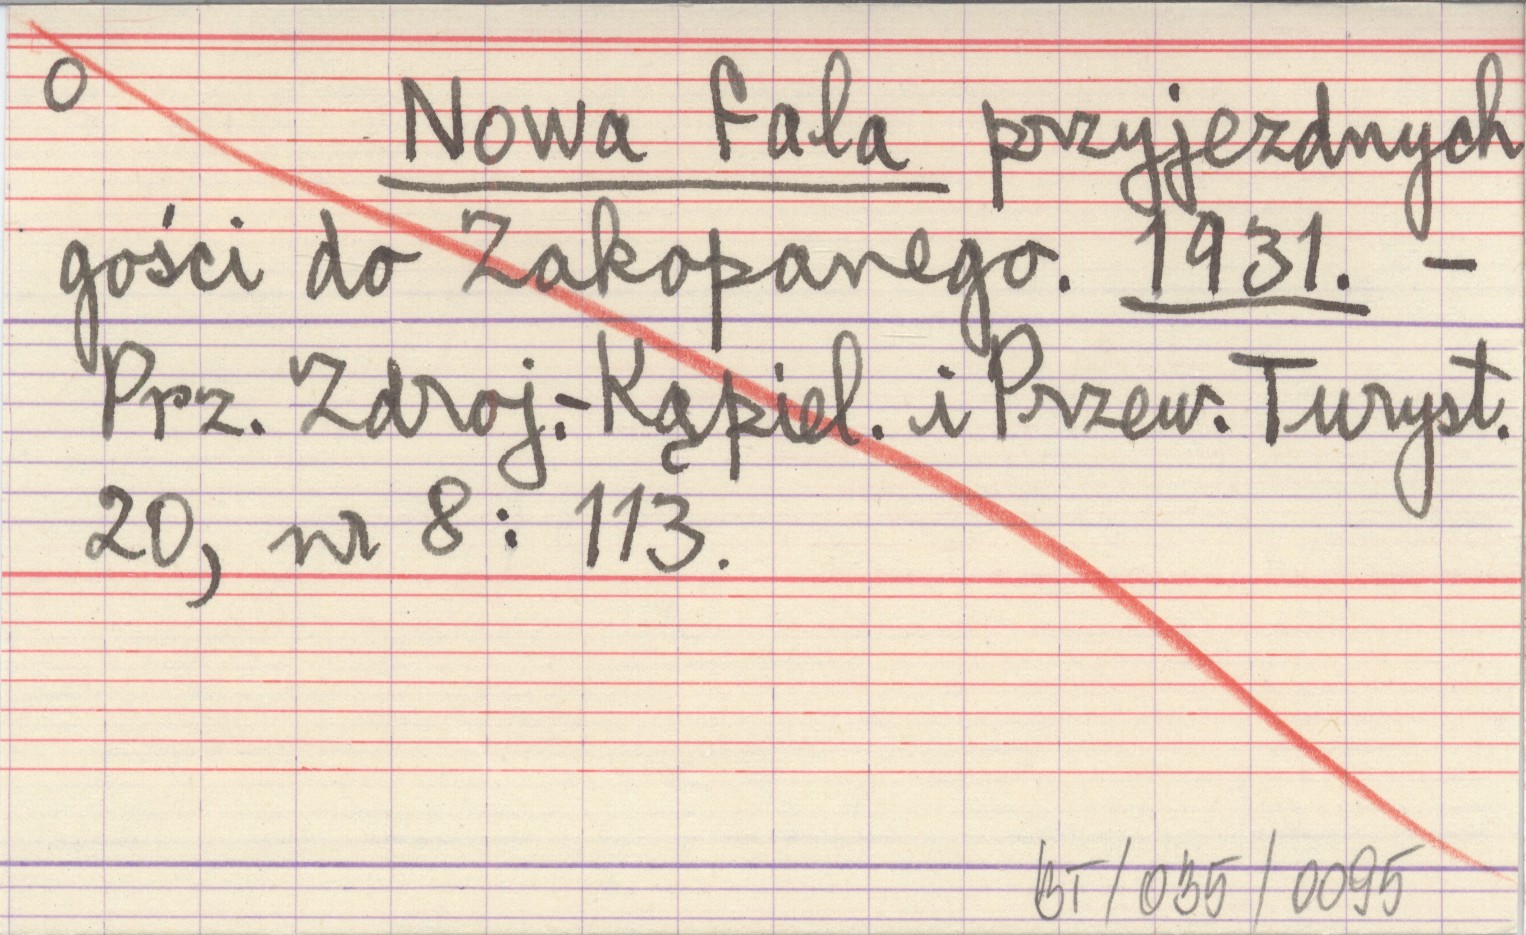 O
Nowa fala przyjezdnych
gości do Zakopanego. 1931. -
Prz. Zdroj.-Kąpiel. i Przew. Turyst.
20, nr 8: 113.
BT/035/0095